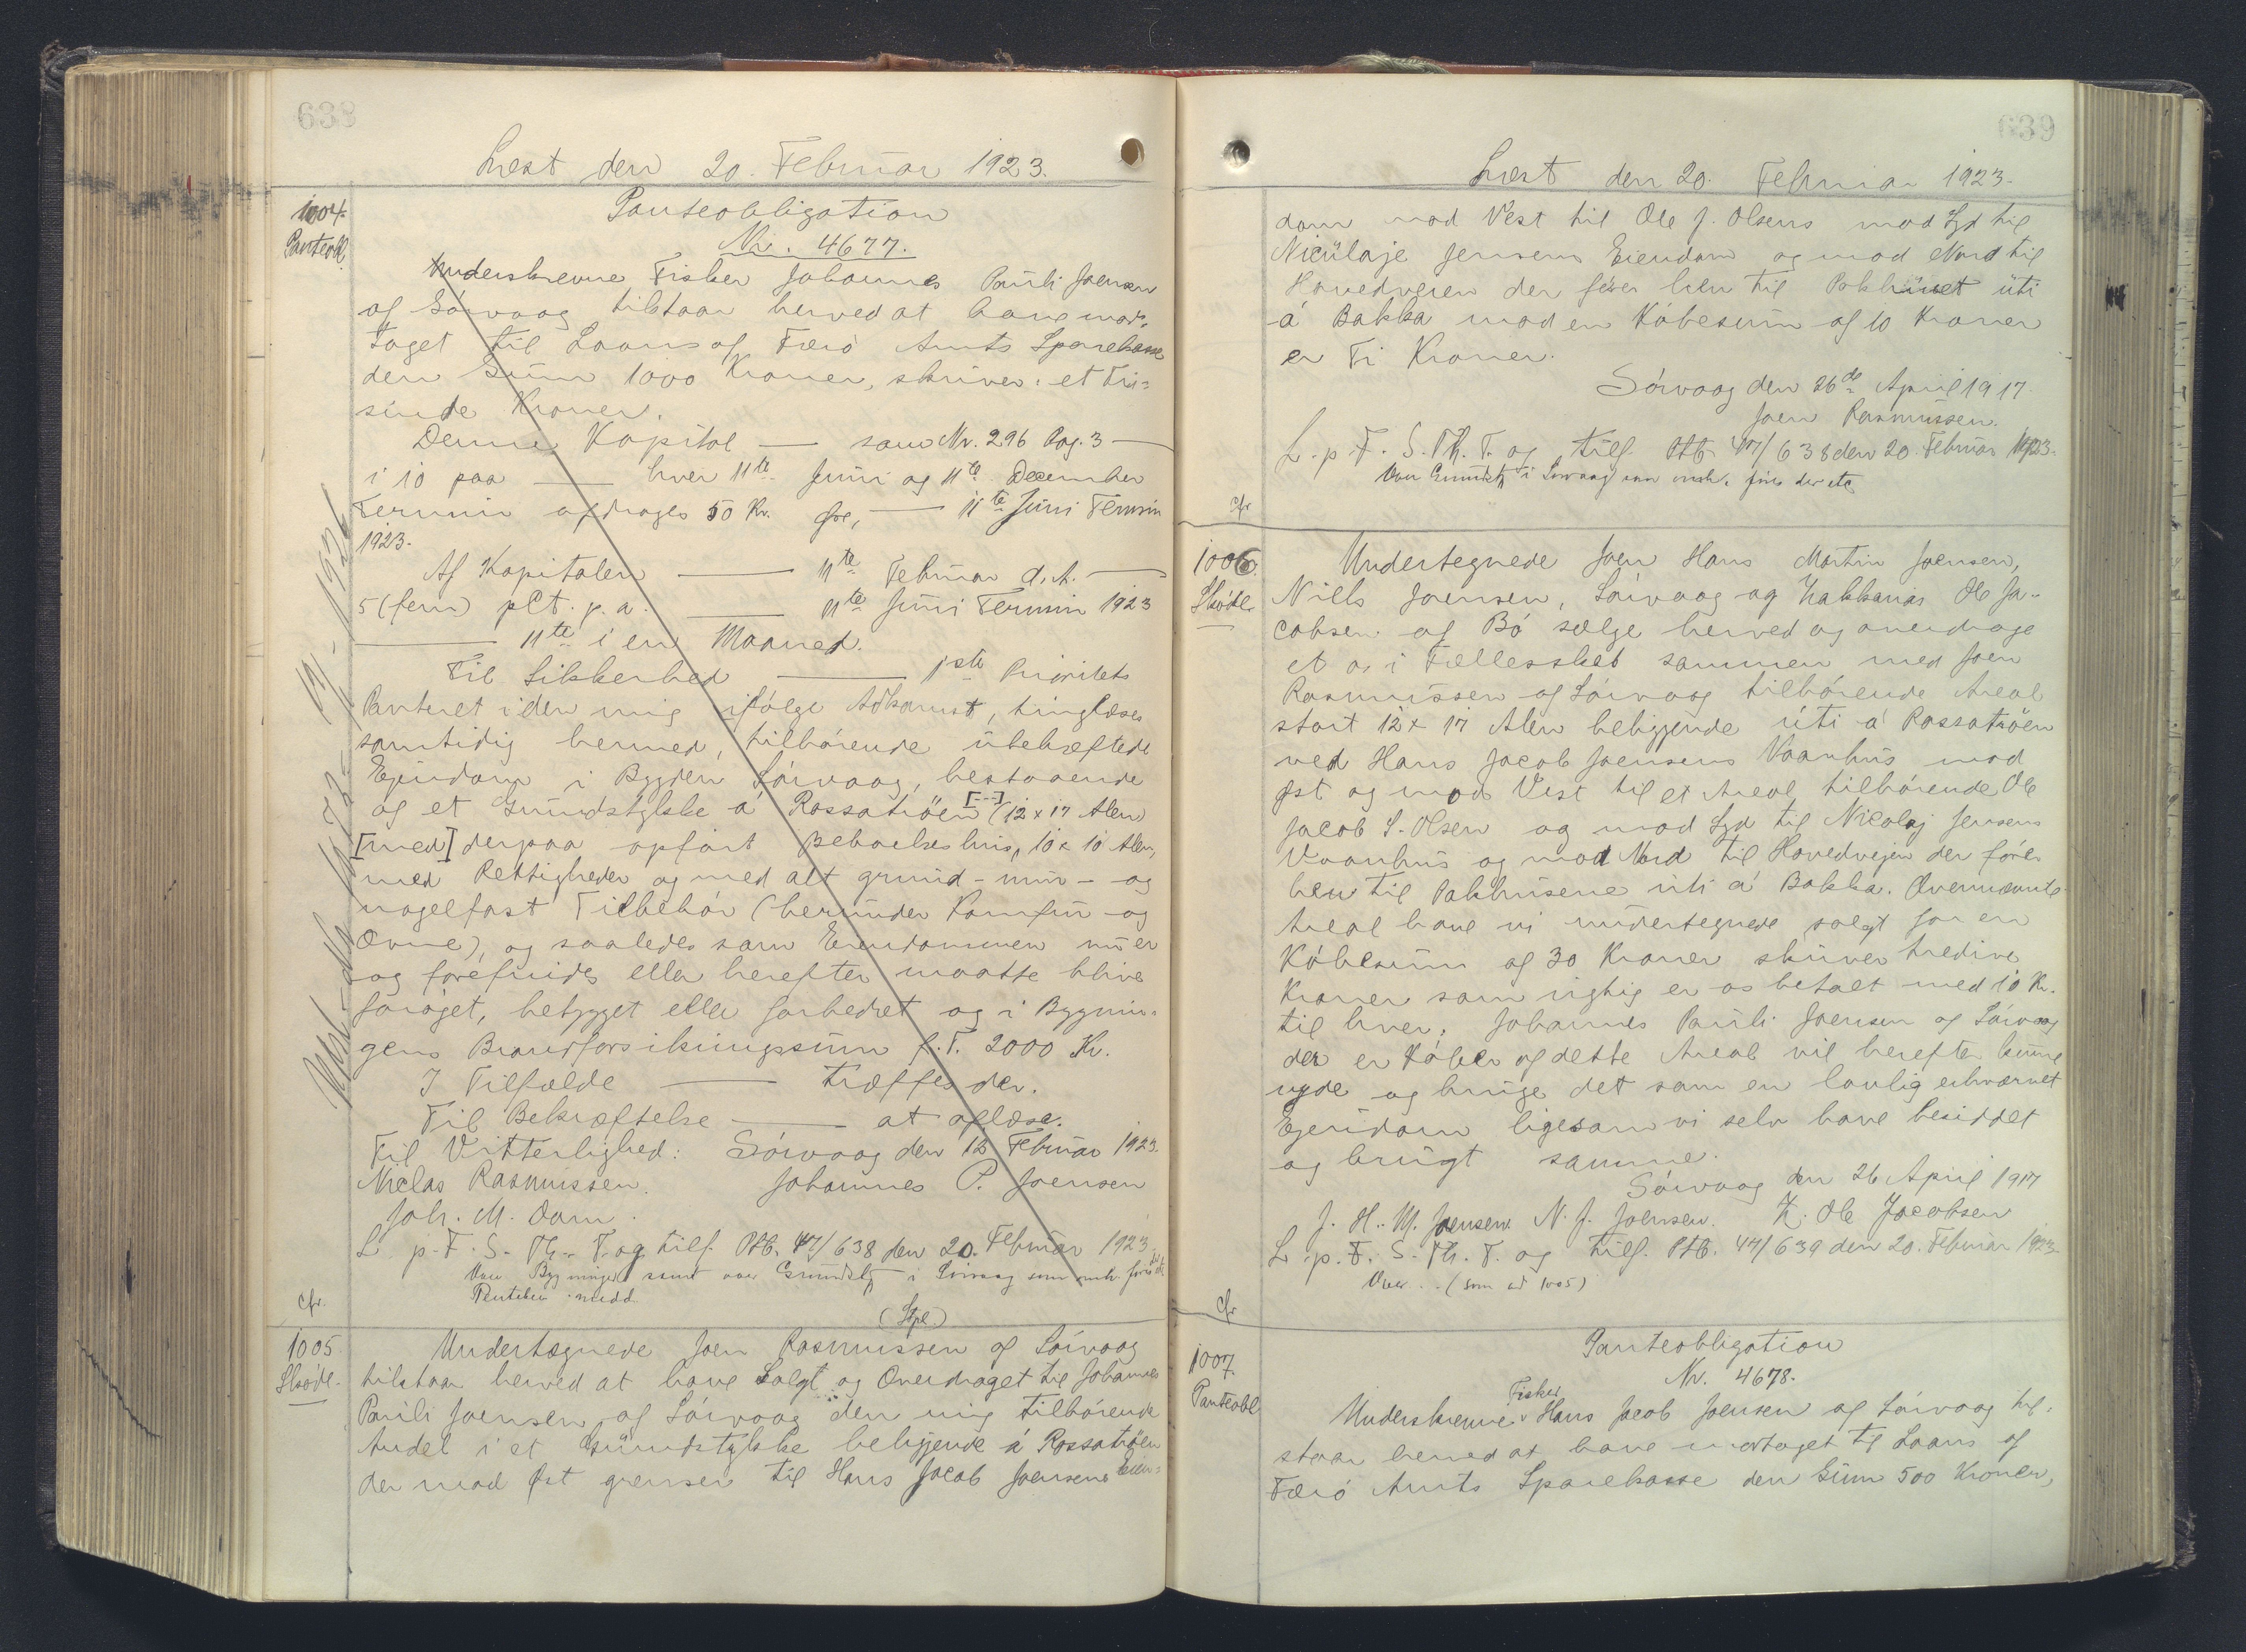 638
Læst den 20. Februar 1923.
1004.
Panteobl.
Panteobligation
Nr. 4677.
Underskrevne Fisker Johannes Pauli Joensen
af Sørvaag tilstaar herved at have mod-
taget til Laans af Færø Amts Sparekasse
den Sum 1000 Kroner, skriver: et Tu-
sinde Kroner.
Denne Kapital — som Nr. 296 Pag. 3 —
i 10 paa — hver 11te Juni og 11te December
Termin afdrages 50 Kr. Øre, — 11te Juni Termin
1923.
Af Kapitalen — 11te Februar d. A. —
5 (fem) pCt. p. a. — 11te Juni Termin 1923
— 11te i en Maaned.
Til Sikkerhed — 1ste Prioritets
Panteret i den mig ifølge Adkomst, tinglæses
samtidig hermed, tilhørende ubehæftede
Ejendom i Bygden Sórvaag, bestaaende
af et Grundstykke á Rossatrøen [---] (12 x 17 Alen)
[med] derpaa opført Beboelseshus, 10 x 10 Alen,
med Rettigheder og med alt grund- mur- og
nagelfast Tilbehør (herunder Komfur og
Ovne), og saaledes som Ejendommen nu er
og forefindes eller herefter maatte blive
forøget, bebygget eller forbedret og i Bygnin-
gens Brandforsikringssum f. T. 2000 Kr.
I Tilfælde — træffes der.
Til Bekræftelse — at aflæse.
Til Vitterlighed: Sórvaag den 12 Februar 1923.
Niclas Rasmussen. Johannes P. Joensen
Joh. M. Dam.
L. p. F. S. Th. T. og tilf. Ptb. 47/638 den 20. Februar 1923
Over Bygninger samt over Grundstk i Sórvaag som indh. føres der etc
Panteher. medd.
Cfr.
1005.
Skøde.
(Stpl)
Undertegnede Joen Rasmussen af Sórvaag
tilstaar herved at have Solgt og Overdraget til Johannes
Pauli Joensen af Sórvaag den mig tilhørende
Andel i et Grundstykke beliggende á Rossatrøen
der mod Øst grenser til Hans Jacob Joensens Eien-
639
Læst den 20. Februar 1923.
dom mod Vest til Ole J. Olsens mod Syd til
Niculaje Jensens Eiendom og mod Nord til
Hovedveien der fører hen til Pakhuset úti
á Bakka mod en Købesum af 10 Kroner
er Ti Kroner.
Sórvaag den 26de April 1917.
Joen Rasmussen.
L. p. F. S. Th. T. og tilf. Ptb. 47/638 den 20. Februar 1923.
Over Grundstk i Sørvaag som indh. føres der etc
Cfr
1006.
Skøde.
Undertegnede Joen Hans Martin Joensen,
Niels Joensen, Sórvaag og Zakkarias Ole Ja-
cobsen af Bó sælge herved og overdrage
et os i Fællesskab sammen med Joen
Rasmussen af Sórvaag tilhørende Areal
stort 12 x 17 Alen beliggende úti á Rossatrøen
ved Hans Jacob Joensens Vaanhus mod
Øst og mod Vest til et Areal tilhørende Ole
Jacob S. Olsen og mod Syd til Nicolaj Jensens
Vaanhus og mod Nord til Hovedvejen der fører
hen til Pakhusene úti á Bakka. Ovennævnte
Areal have vi undertegnede solgt for en
Købesum af 30 Kroner skriver tredive
Kroner som rigtig er os betalt med 10 Kr.
til hver. Johannes Pauli Joensen af Sórvaag
der er Køber af dette Areal vil herefter kunne
nyde og bruge det som en lovlig erhvervet
Ejendom ligesom vi selv have besiddet
og brugt samme.
Sórvaag den 26 April 1917
J. H. M. Joensen. N. J. Joensen. Z. Ole Jacobsen
L. p. F. S. Th. T. og tilf. Ptb. 47/639 den 20. Februar 1923.
Over . . (som ad 1005)
Cfr
1007.
Panteobl.
Panteobligation
Nr. 4678.
Underskrevne Fisker Hans Jacob Joensen af Sórvaag til-
staar herved at have modtaget til Laans af
Færø Amts Sparekasse den Sum 500 Kroner,